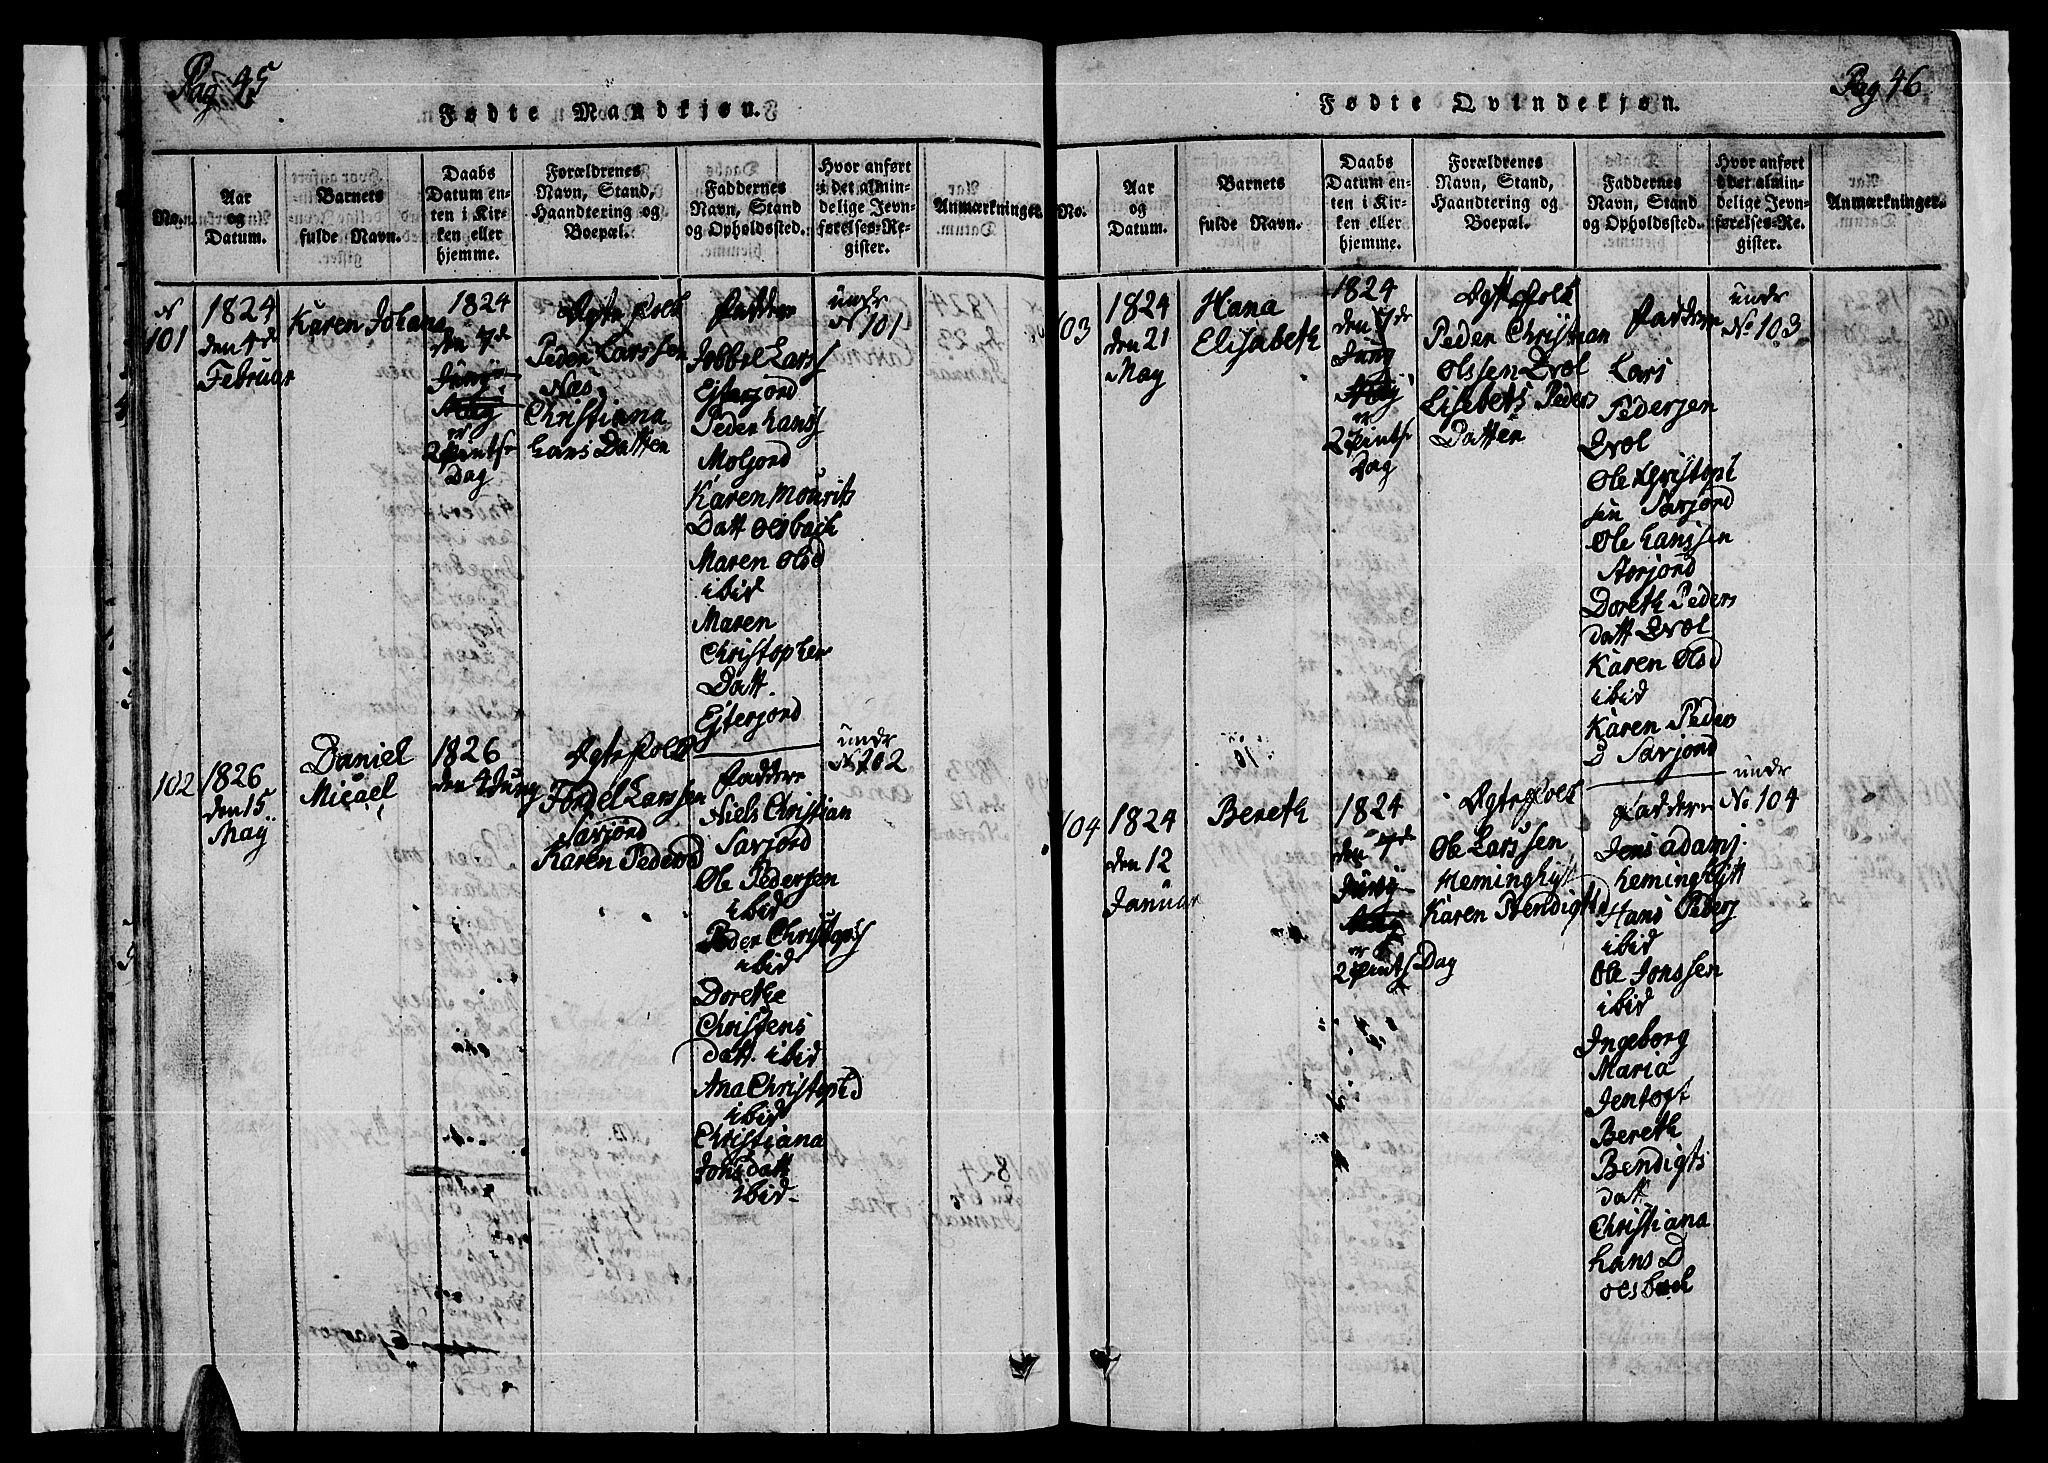 Pag 45
Fødte Mandkjøn.
No.
Aar
og
Datum.
Barnets
fulde Navn.
Daabs
Datum en-
ten i Kir-
ken eller
hjemme.
Forældrenes
Navn, Stand,
Haandtering og
Boepæl.
Faddernes
Navn, Stand
og Opholdssted.
Hvor anført
i det almin-
delige Jevn-
førelses-Re-
gister.
Anmærkninger.
N
101
1824
den 4de
Februar
Karen Johana
1824
den 7de
Juny
er
2 Pints
Dag
Ægte Folk
Peder Larssen
Næs
Christiana
Lars Datter
Faddere
Jobbel Lars
Ejterjord
Peder Hans
Moljord
Karen Mourits
Datt Olsbach
Maren Olsd
ibid
Maren
Christopher
Datt.
Ejterjord
under
N 101
102
1826
den 15
May
Daniel
Micael
1826
den 4 Juny
Ægte Folk
Tordel Larssen
Savjord
Karen Pedersd
Faddere
Niels Christian
Savjord
Ole Pedersen
ibid
Peder Christops
ibid
Dorethe
Christens
datt. ibid
Ana Christopd
ibid
Christiana
Jonsdatt
ibid
under
N 102
Pag 46
Fødte Qvindekjøn.
No.
Aar
og
Datum.
Barnets
fulde Navn.
Daabs
Datum en-
ten i Kir-
ken eller
hjemme.
Forældrenes
Navn, Stand,
Haandtering og
Boepæl.
Faddernes
Navn, Stand
og Opholdssted.
Hvor anført
i det almin-
delige Jevn-
førelses-Re-
gister.
Anmærkninger.
103
1824
den 21
May
Hana
Elisabeth
1824
den 7de
Juny
er
2 Pints
Dag
Ægte Folk
Peder Christian
Olssen Qvol
Lisebets Peders
Datter
Faddere
Lars
Pedersen
Qvol
Ole Christops
sen Savjord
Ole Hanssen
Aorjord
Doreth Peders
datt Qvol
Karen Olsd
ibid
Karen Peders
D Savjord
under
No 103
104
1824
den 12
Januar
Bereth
1824
den 7de
Juny
er
2 Pints Dag
Ægte Folk
Ole Larssen
Heminghyt
Karen Bendigtsd
Faddere
Jens Adams
Heminghytt
Hans Peders
ibid
Ole Jonssen
ibid
Ingeborg
Maria
Jentoft
Bereth
Bendigts
datt.
Christiana
Hans D
Olsbach
under
No 104